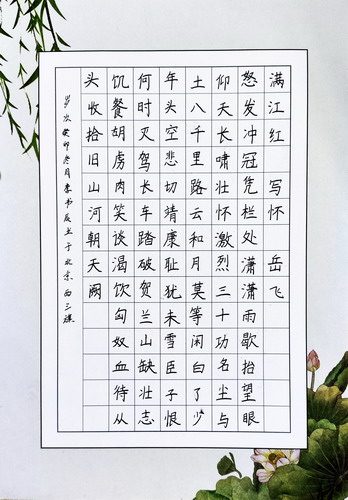 满江红 写怀 岳飞
怒发冲冠凭栏处潇潇雨歇抬望眼
仰天长啸壮怀激烈三十功名尘与
土八千里路云和月莫等闲白了少
年头空悲切靖康耻犹未雪臣子恨
何时灭驾长车踏破贺兰山缺壮志
饥餐胡虏肉笑谈渴饮匈奴血待从
头收拾旧山河朝天阙
岁次癸卯冬月李书于北京西三旗